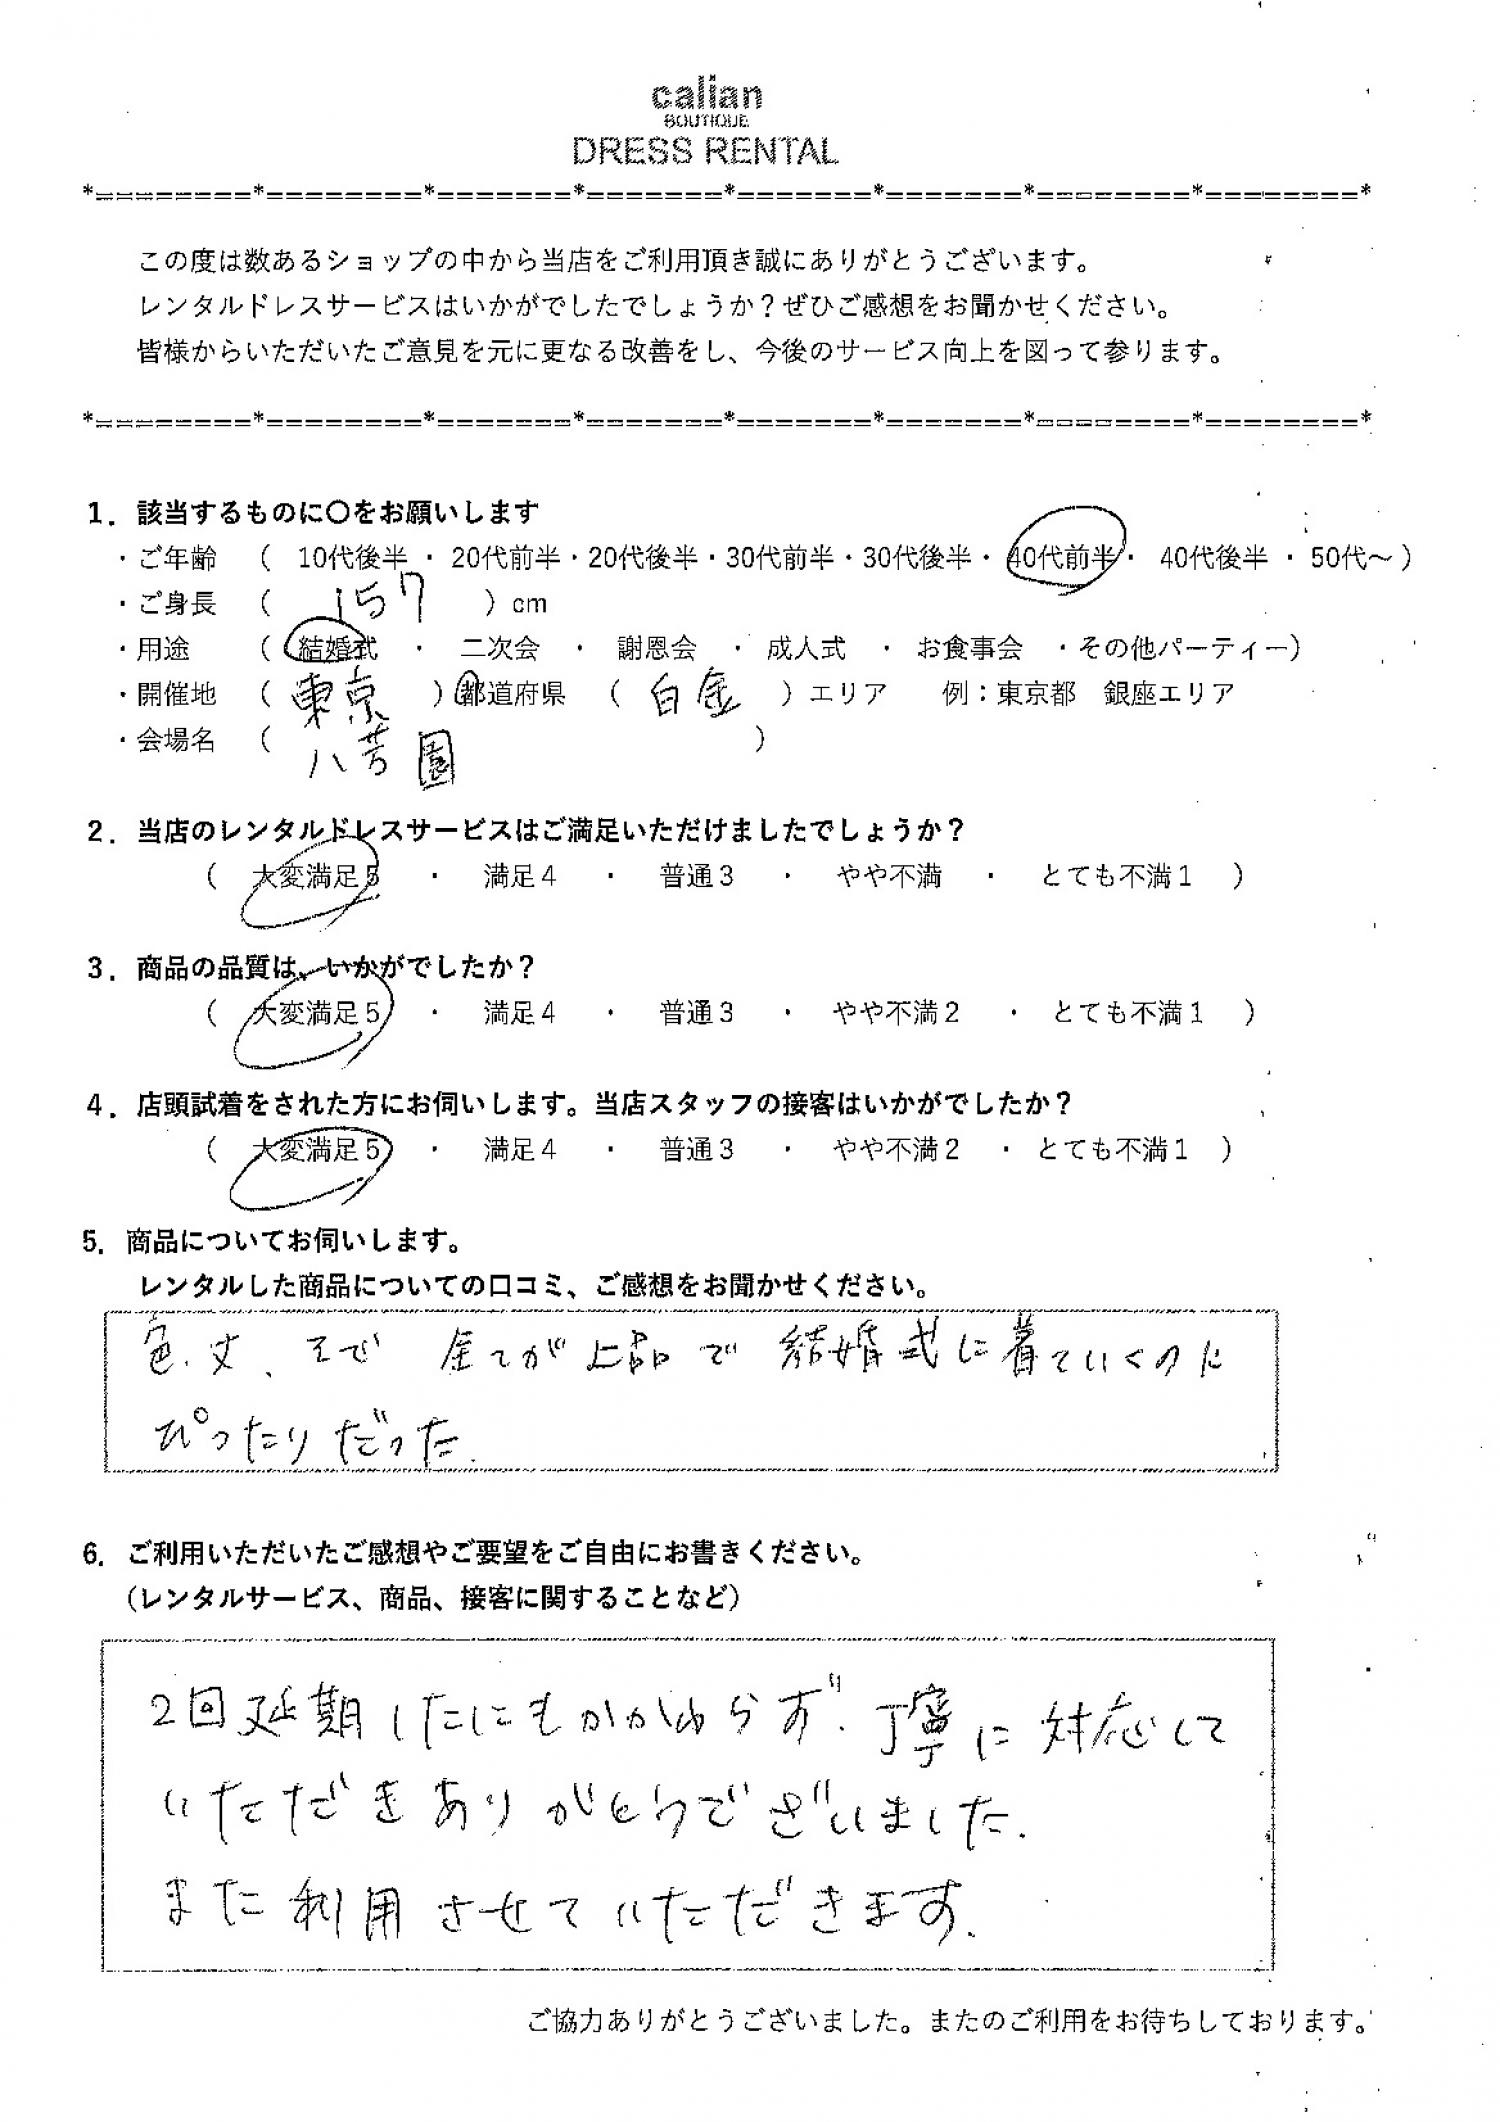 calian
BOUTIQUE
DRESS RENTAL
*========*========*=======*=======*=======*=======*========*========*
この度は数あるショップの中から当店をご利用頂き誠にありがとうございます。
レンタルドレスサービスはいかがでしたでしょうか？ぜひご感想をお聞かせください。
皆様からいただいたご意見を元に更なる改善をし、今後のサービス向上を図って参ります。
*========*========*=======*=======*=======*=======*========*========*
1．該当するものに〇をお願いします
・ご年齢 （ 10代後半 ・ 20代前半・20代後半・30代前半・30代後半・ 40代前半・ 40代後半 ・ 50代～）
・ご身長 （ 157 ）cm
・用途 （ 結婚式 ・ 二次会 ・ 謝恩会 ・ 成人式 ・ お食事会 ・その他パーティー）
・開催地 （ 東京 ）都道府県 （ 白金 ）エリア 例：東京都 銀座エリア
・会場名 （ 八芳園 ）
2．当店のレンタルドレスサービスはご満足いただけましたでしょうか？
（ 大変満足5 ・ 満足4 ・ 普通3 ・ やや不満 ・ とても不満1 ）
3．商品の品質は、いかがでしたか？
（ 大変満足5 ・ 満足4 ・ 普通3 ・ やや不満2 ・ とても不満1 ）
4．店頭試着をされた方にお伺いします。当店スタッフの接客はいかがでしたか？
（ 大変満足5 ・ 満足4 ・ 普通3 ・ やや不満2 ・ とても不満1 ）
5．商品についてお伺いします。
レンタルした商品についての口コミ、ご感想をお聞かせください。
色、丈、そで 全てが上品で 結婚式に着ていくのに
ぴったりだった.
6．ご利用いただいたご感想やご要望をご自由にお書きください。
（レンタルサービス、商品、接客に関することなど）
2回延期したにもかかわらず、丁寧に対応して
いただきありがとうございました.
また利用させていただきます.
ご協力ありがとうございました。またのご利用をお待ちしております。